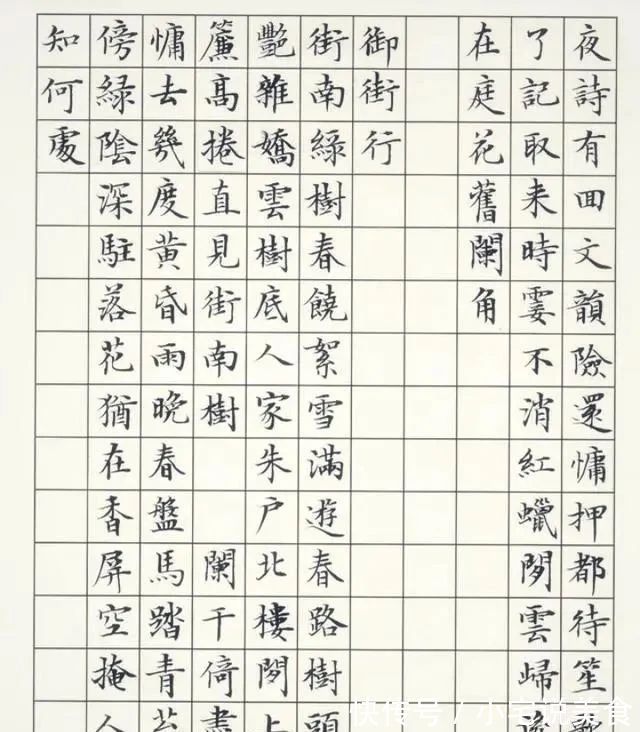 夜詩有囬文韻險還慵押都待笙歌
了記取来時霎不消紅蠟閒雲歸後
在庭花舊闌角
御街行
街南綠樹春饒絮雪滿遊春路樹頭
艷雜嬌雲樹底人家朱戶北樓閒上
簾高捲直見街南樹 闌干倚盡
慵去幾度黃昏雨晚春盤馬踏青苔
傍綠陰深駐落花猶在香屏空掩人
知何處
快传号／小宅说美食